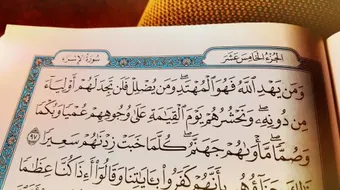 الجزء الخامس عشر
سورة الإسراء
وَمَن يَهْدِ ٱللَّهُ فَهُوَ ٱلْمُهْتَدِ ۖ وَمَن يُضْلِلْ فَلَن تَجِدَ لَهُمْ أَوْلِيَآءَ
مِن دُونِهِۦ ۖ وَنَحْشُرُهُمْ يَوْمَ ٱلْقِيَٰمَةِ عَلَىٰ وُجُوهِهِمْ عُمْيًا وَبُكْمًا
وَصُمًّا ۖ مَّأْوَىٰهُمْ جَهَنَّمُ ۖ كُلَّمَا خَبَتْ زِدْنَٰهُمْ سَعِيرًا ٩٧
ذَٰلِكَ جَزَآؤُهُم بِأَنَّهُمْ كَفَرُوا۟ بِـَٔايَٰتِنَا وَقَالُوٓا۟ أَءِذَا كُنَّا عِظَٰمًا